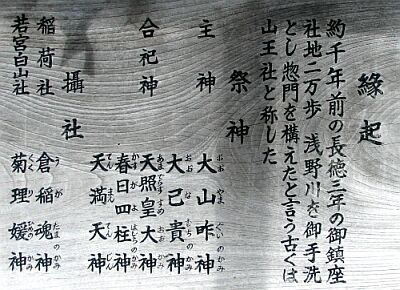 縁起
約千年前の長徳三年の御鎮座
社地二万歩 浅野川を御手洗
とし惣門を構えたと言う古くは
山王社と称した
祭神
主神 大山咋神
大己貴神
合祀神 天照皇大神
春日四柱神
天満天神
攝社
稲荷社 倉稲魂神
若宮白山社 菊理媛神